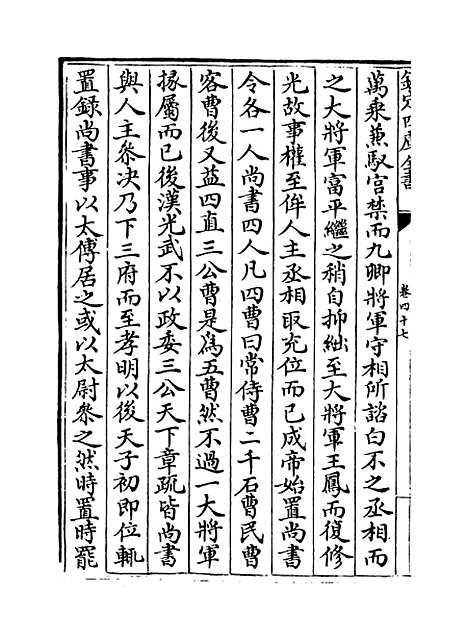 欽定四庫全書
卷四十七
萬乘兼馭宫禁而九卿將軍守相所諮白不之丞相而
之大將軍富平繼之稍自抑絀至大將軍王鳳而復修
光故事權至侔人主丞相取充位而已成帝始置尚書
令各一人尚書四人凡四曹曰常侍曹二千石曹民曹
客曹後又益四直三公曹是爲五曹然不過一大將軍
掾屬而已後漢光武不以政委三公天下章疏皆尚書
與人主叅决乃下三府而至孝明以後天子初即位輒
置録尚書事以太傅居之或以太尉叅之然時置時罷